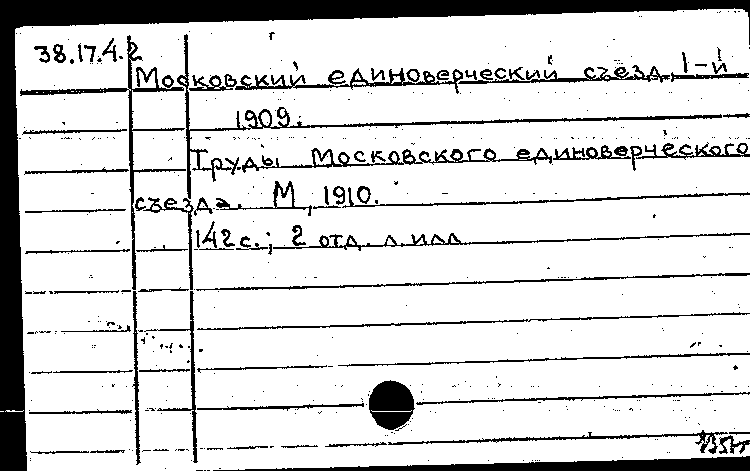 38.17.4.2
Московский единоверческий съезд, 1-й
1909.
Труды Московского единоверческого
съезда. М, 1910.
142 с.; 2 отд. л. илл